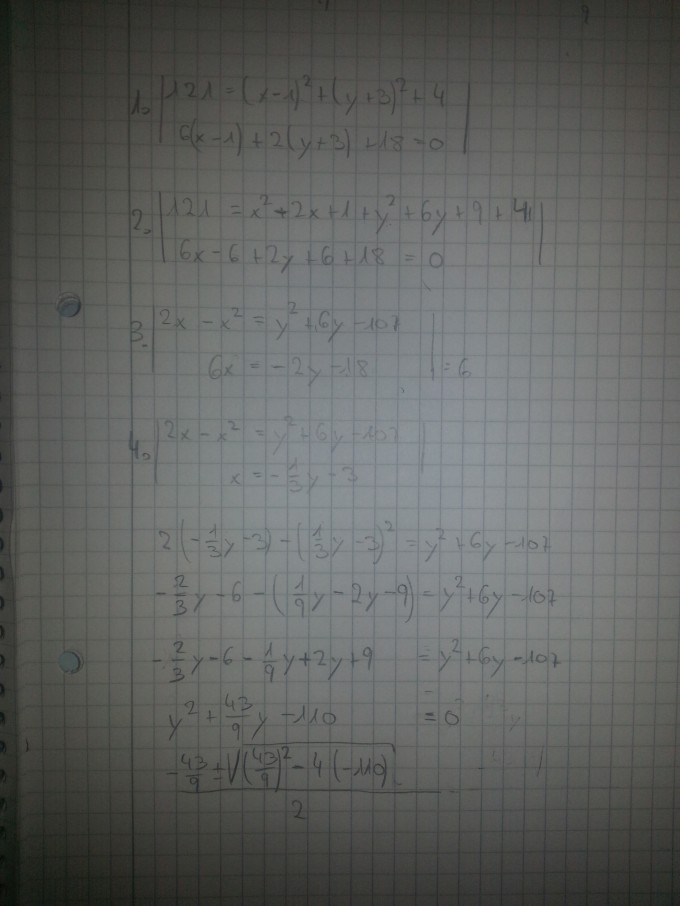 1. | 121 = (x-1)² + (y+3)² + 4 |
6(x-1) + 2(y+3) + 18 = 0
2. | 121 = x² - 2x + 1 + y² + 6y + 9 + 4 |
6x - 6 + 2y + 6 + 18 = 0
3. | 2x - x² = y² + 6y - 107 |
6x = -2y - 18 | :6
4. | 2x - x² = y² + 6y - 107 |
x = -1/3 y - 3
2(-1/3 y - 3) - (1/3 y - 3)² = y² + 6y - 107
-2/3 y - 6 - (1/9 y - 2y - 9) = y² + 6y - 107
-2/3 y - 6 - 1/9 y + 2y + 9 = y² + 6y - 107
y² + 43/9 y - 110 = 0
(-43/9 ± √((43/9)² - 4(-110))) / 2